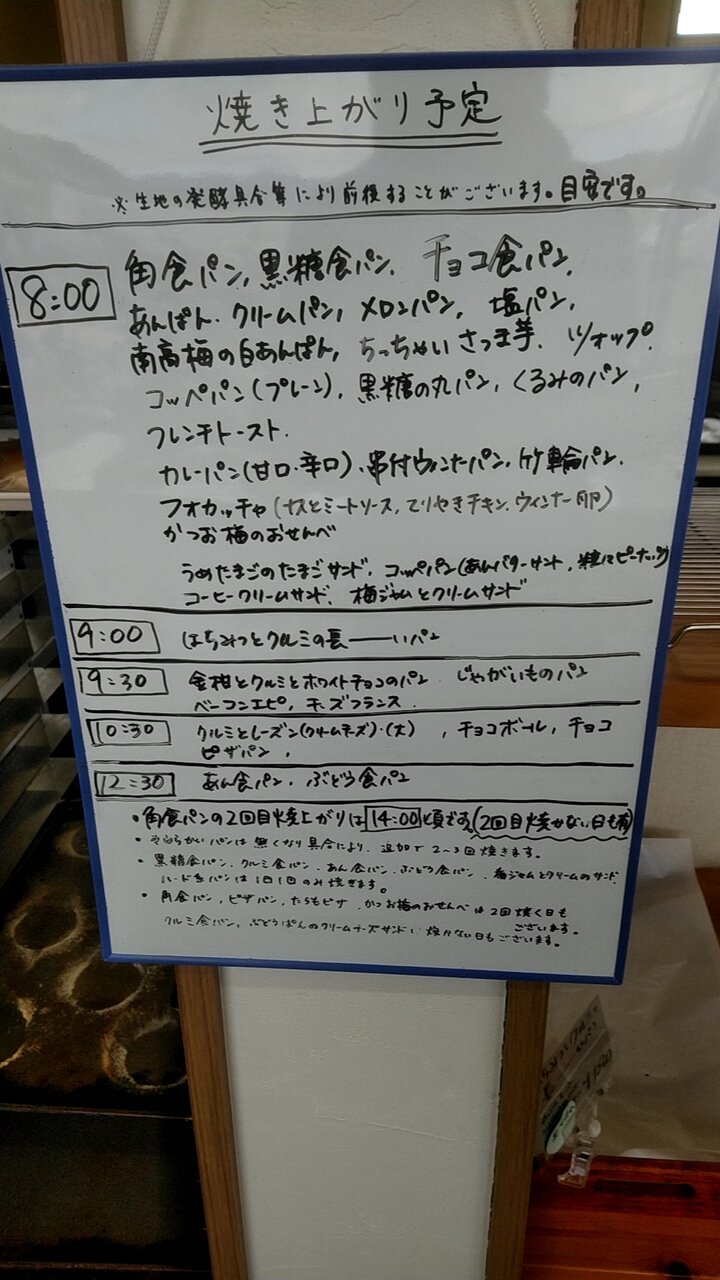 焼き上がり予定
※生地の発酵具合等により前後することがございます。目安です。
8:00
角食パン, 黒糖食パン, チョコ食パン,
あんぱん、クリームパン, メロンパン, 塩パン,
南高梅の白あんぱん, ちっちゃいさつま芋, ツォップ,
コッペパン(プレーン), 黒糖の丸パン, くるみのパン,
フレンチトースト,
カレーパン(甘口・辛口)、串付ウィンナーパン, 竹輪パン,
フォカッチャ(ナスとミートソース, てりやきチキン, ウィンナー卵)
かつお梅のおせんべ
うめたまごのたまごサンド, コッペパン(あんバターサンド, 粒にピーナッツ)
コーヒークリームサンド, 梅ジャムとクリームサンド
9:00 はちみつとクルミの長――いパン
9:30 金柑とクルミとホワイトチョコのパン じゃがいものパン
ベーコンエピ, チーズフランス,
10:30 クルミとレーズン(クリームチーズ)・(大) , チョコボール, チョコ
ピザパン,
12:30 あん食パン、ぶどう食パン
・角食パンの2回目焼上がりは14:00頃です。(2回目焼かない日も有)
・やわらかいパンは無くなり具合により、追加で2~3回焼きます。
・黒糖食パン、クルミ食パン、あん食パン、ぶどう食パン、梅ジャムとクリームのサンド、
ハード系パンは1日1回のみ焼きます。
・角食パン, ピザパン, たらもピザ、かつお梅のおせんべは2回焼く日も
ございます。
クルミ食パン, ぶどうぱんのクリームチーズサンドは焼かない日もございます。